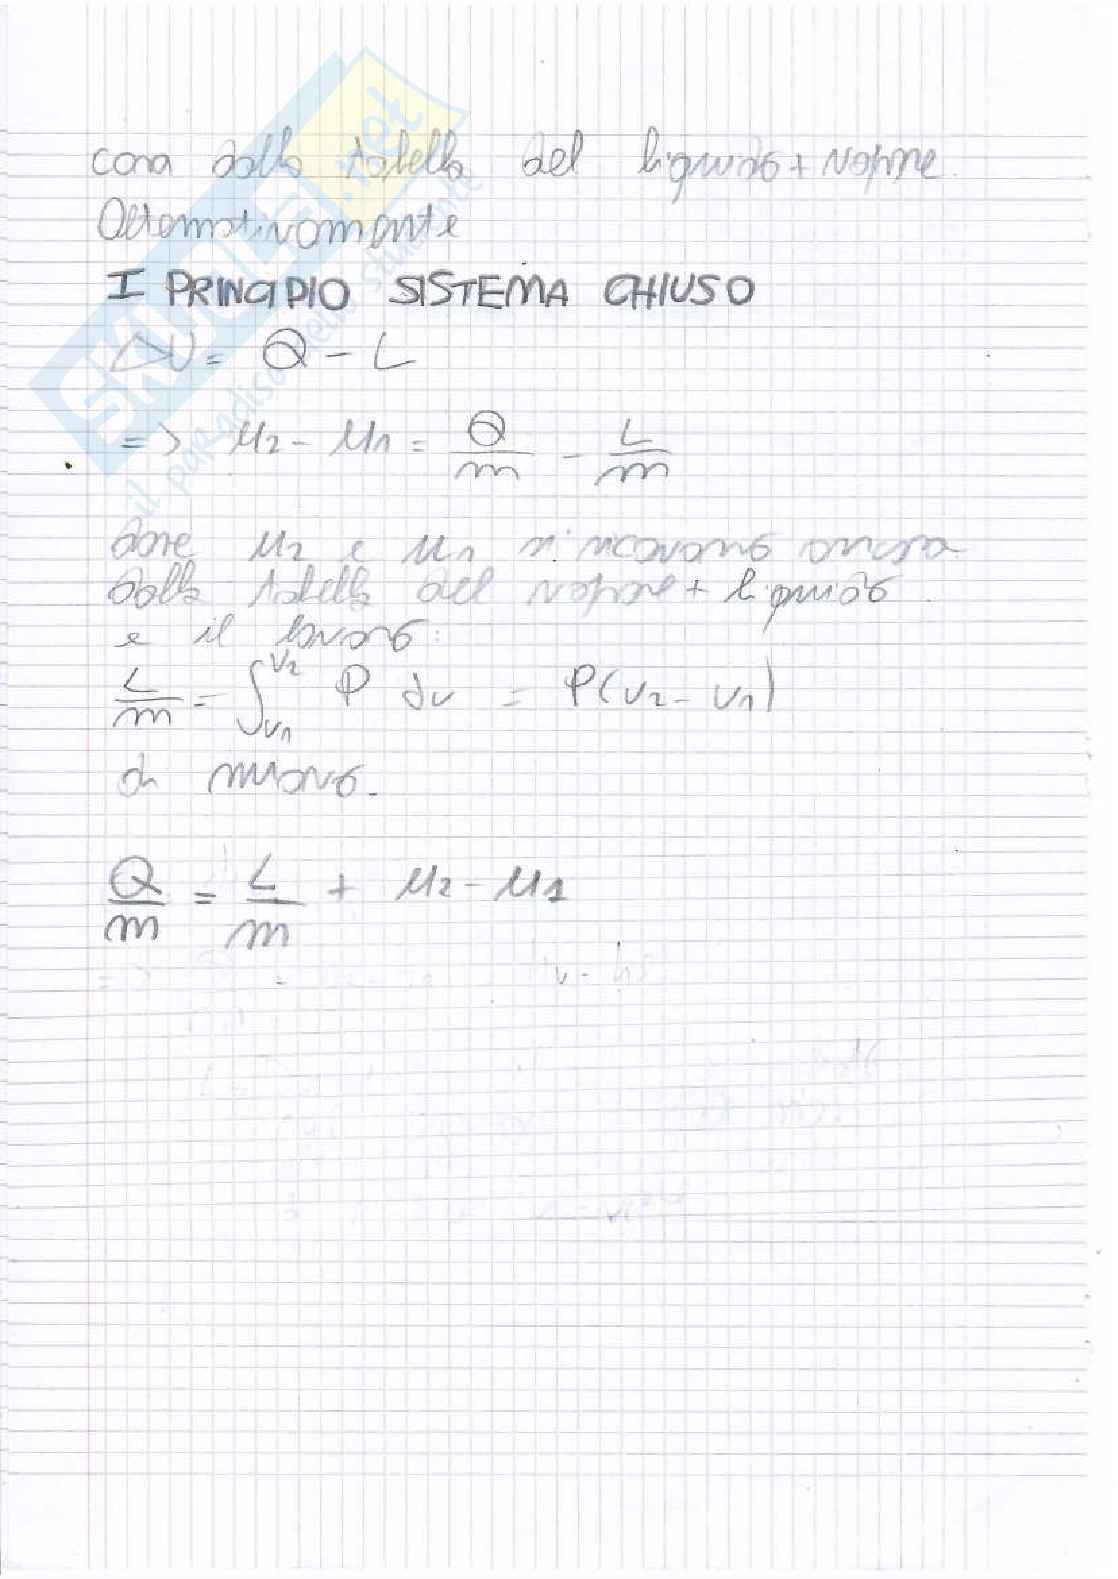 cava dalla tabella del liquido + vapore.
Alternativamente
I PRINCIPIO SISTEMA CHIUSO
ΔU = Q - L
=> u2 - u1 = Q/m - L/m
dove u2 e u1 si ricavano ancora
dalla tabella del vapore + liquido.
e il lavoro:
L/m = ∫v1^v2 P dv = P(v2 - v1)
di nuovo.
Q/m = L/m + u2 - u1
SKUOLA.net
il paradiso dello studente